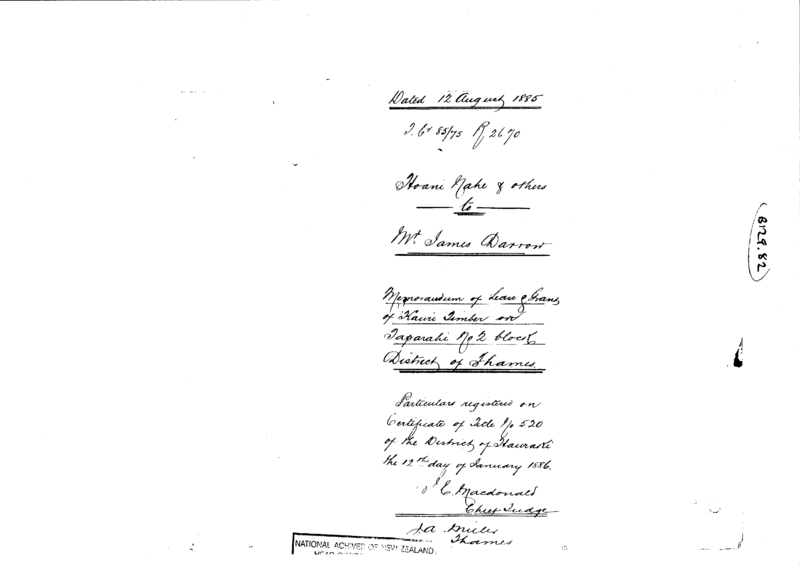 Dated 12 August 1885
T. Ct 85/75 R 2670
Hoani Nahe & others
to
Mr. James Darrow
Memorandum of Lease & Grant
of Kauri Timber on
Taparahi No 2 block
District of Thames.
Particulars registered on
Certificate of Title No 520
of the District of Hauraki
the 12th day of January 1886.
J E. Macdonald
Chief Judge
J.A. Miller
Thames
NATIONAL ACHIVES OF NEW ZEALAND.
B129.82